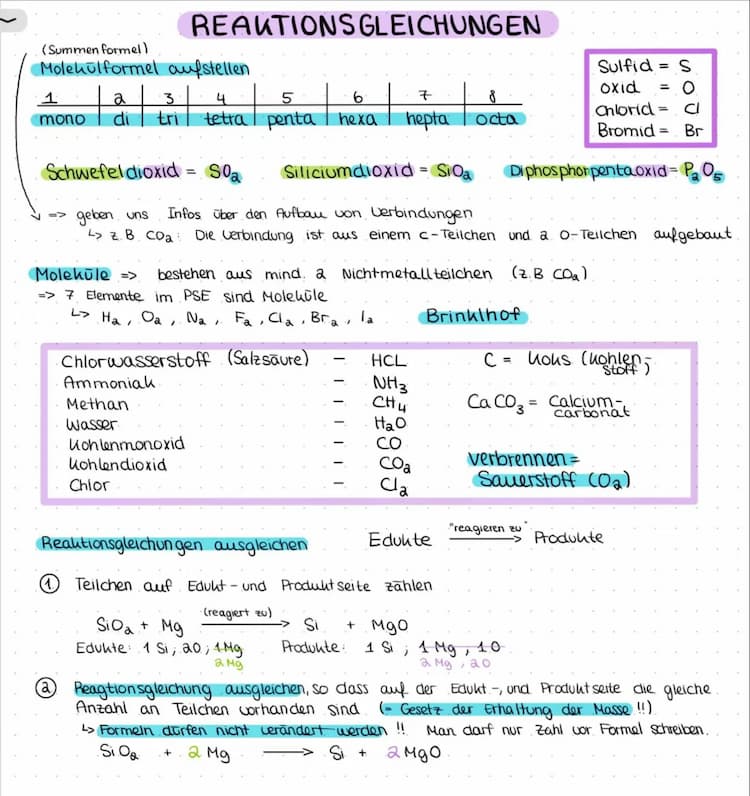 REAKTIONSGLEICHUNGEN
(Summenformel)
Molekülformel aufstellen
1 2 3 4 5 6 7 8
mono di tri tetra penta hexa hepta octa
Sulfid = S
oxid = O
Chlorid = Cl
Bromid = Br
Schwefeldioxid = SO₂ Siliciumdioxid = SiO₂ Diphosphorpentaoxid = P₂O₅
=> geben uns Infos über den Aufbau von Verbindungen
↳ z.B. CO₂: Die Verbindung ist aus einem C-Teilchen und 2 O-Teilchen aufgebaut
Moleküle => bestehen aus mind. 2 Nichtmetallteilchen (z.B CO₂)
=> 7 Elemente im PSE sind Moleküle
↳ H₂, O₂, N₂, F₂, Cl₂, Br₂, I₂ Brinklhof
Chlorwasserstoff (Salzsäure) – HCL
Ammoniak – NH₃
Methan – CH₄
Wasser – H₂O
Kohlenmonoxid – CO
Kohlendioxid – CO₂
Chlor – Cl₂
C = Koks (Kohlen-
stoff)
CaCO₃ = Calcium-
carbonat
verbrennen =
Sauerstoff (O₂)
Reaktionsgleichungen ausgleichen Edukte "reagieren zu" → Produkte
① Teilchen auf Edukt- und Produktseite zählen
SiO₂ + Mg (reagiert zu) → Si + MgO
Edukte: 1 Si, 2O, 1Mg Produkte: 1 Si, 1 Mg, 1O
2Mg 2 Mg, 2O
② Reagtionsgleichung ausgleichen, so dass auf der Edukt-, und Produktseite die gleiche
Anzahl an Teilchen vorhanden sind (= Gesetz der Erhaltung der Masse!!)
↳ Formeln dürfen nicht verändert werden!! Man darf nur Zahl vor Formel schreiben.
SiO₂ + 2 Mg → Si + 2 MgO